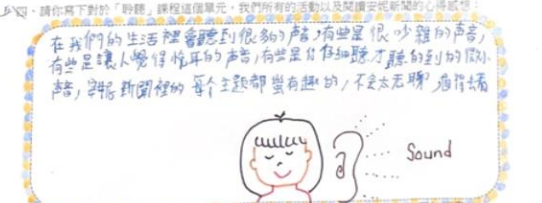 四、請你寫下對於「聆聽」課程這個單元，我們所有的活動以及閱讀安妮新聞的心得感想：
在我們的生活裡會聽到很多的聲音，有些是很吵雜的聲音，
有些是讓人覺得悅耳的聲音，有些是仔仔細聽才聽的到的微小
聲音，安妮新聞裡的每个主題都蠻有趣的，不会太无聊，值得去看
Sound